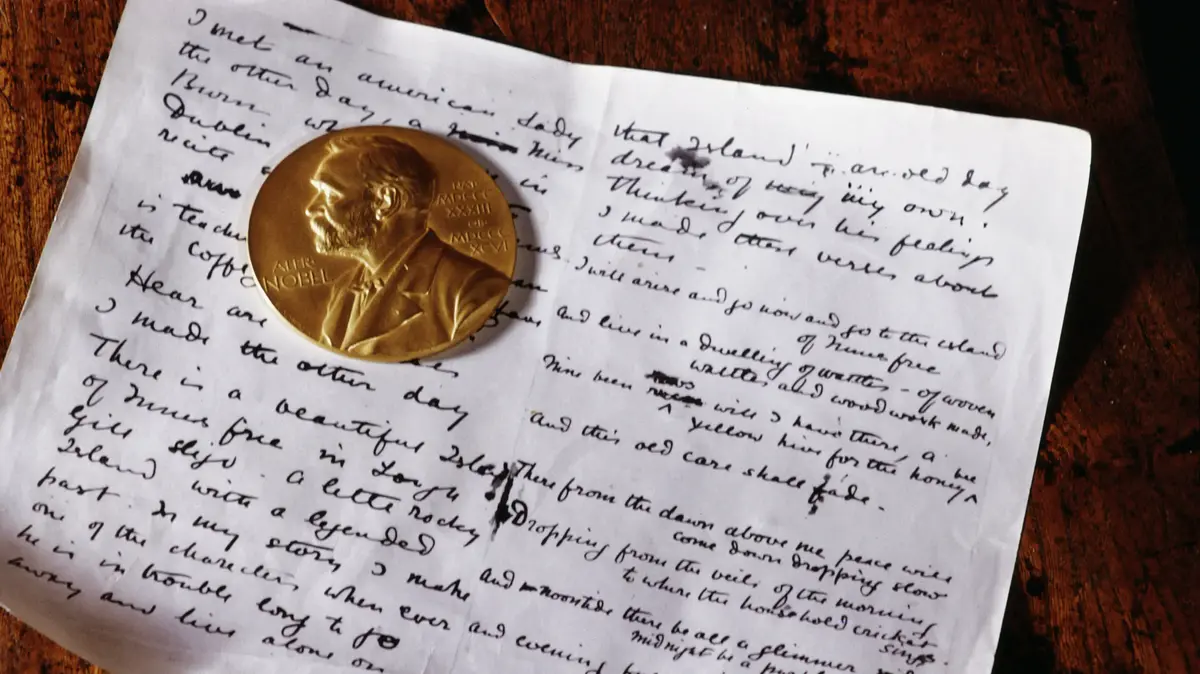 I met an american Lady
the other day, a Miss
Burn
Dublin wh in
recite
is teach
the coffe
Hear are
I made the other day
There is a beautiful Isle
of Innis free in Lough
Gill Sligo. A little rocky
Island with a legended
past. In my story I make
one of the characters when ever
he is in trouble long to go
away and live alone on
ALFR·
NOBEL
NAT·
MDCCC
XXXIII
OB·
MDCCC
XCVI
that Island — an old day
dream of my own.
Thinking over his feelings
I made these verses about
them —
I will arise and go now and go to the island
of Innis free
and live in a dwelling of wattles – of woven
wattles and wood work made,
Nine been rows will I have there, a
yellow hive for the honey bee
And this old care shall fade.
There from the dawn above me peace will
come down dropping slow
Dropping from the veils of the morning
to where the household cricket
sings.
And noontide there be all a glimmer
midnight be a
and evening